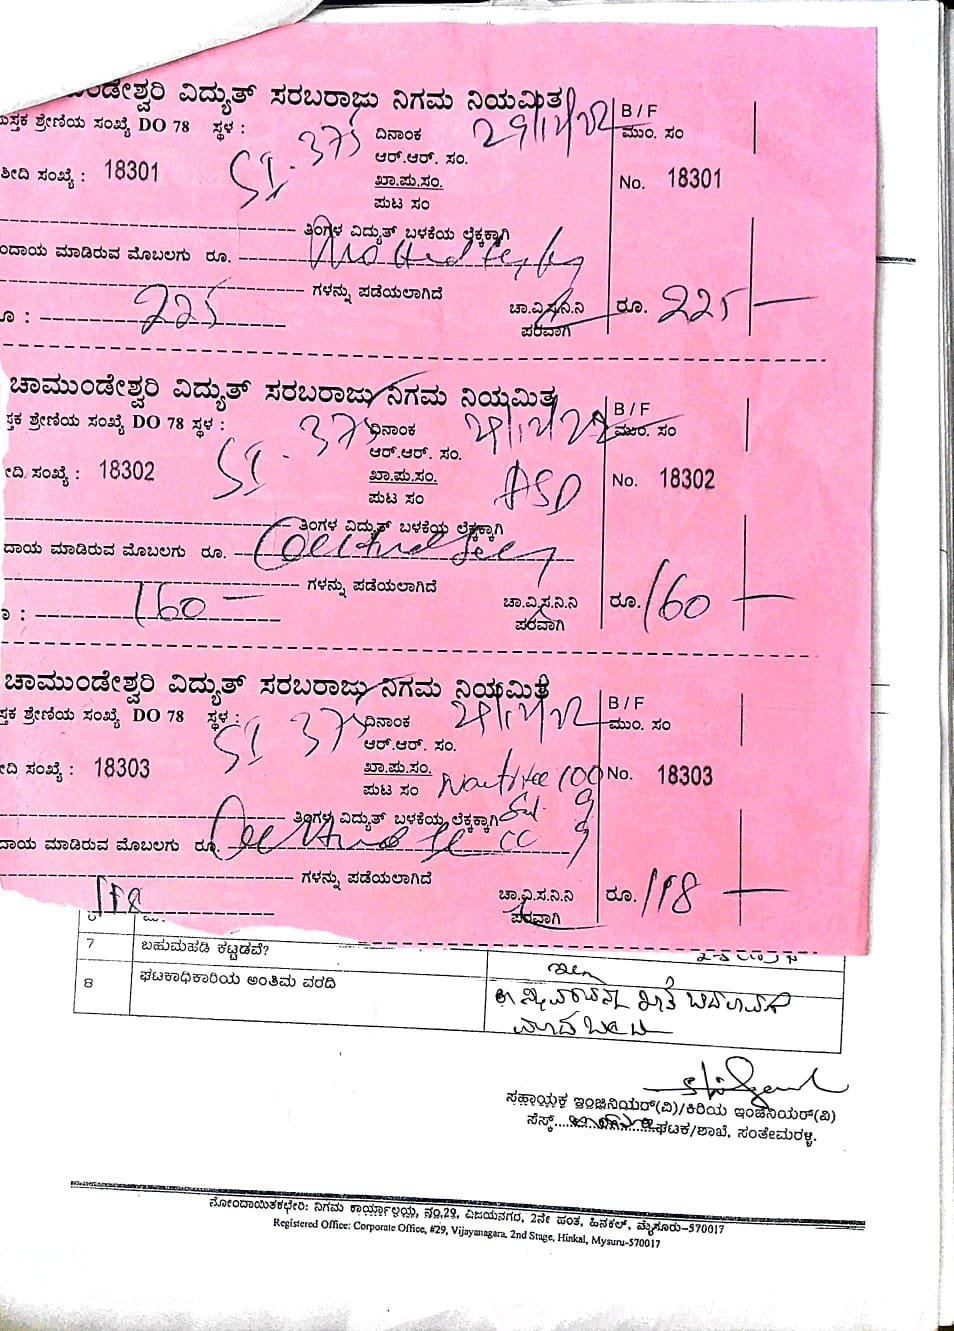 ಚಾಮುಂಡೇಶ್ವರಿ ವಿದ್ಯುತ್ ಸರಬರಾಜು ನಿಗಮ ನಿಯಮಿತ
ಸ್ತಕ ಶ್ರೇಣಿಯ ಸಂಖ್ಯೆ DO 78 ಸ್ಥಳ : SI. 375 ದಿನಾಂಕ 29/12/22 B / F
ಮುಂ. ಸಂ
ಆರ್.ಆರ್. ಸಂ.
ಶೀದಿ ಸಂಖ್ಯೆ : 18301 ಖಾ.ಪು.ಸಂ. No. 18301
ಪುಟ ಸಂ
ತಿಂಗಳ ವಿದ್ಯುತ್ ಬಳಕೆಯ ಲೆಕ್ಕಕ್ಕಾಗಿ
ಂದಾಯ ಮಾಡಿರುವ ಮೊಬಲಗು ರೂ.
ಗಳನ್ನು ಪಡೆಯಲಾಗಿದೆ
ೂ : 225 ಚಾ.ವಿ.ಸ.ನಿ.ನಿ ರೂ. 225
ಪರವಾಗಿ
ಚಾಮುಂಡೇಶ್ವರಿ ವಿದ್ಯುತ್ ಸರಬರಾಜು ನಿಗಮ ನಿಯಮಿತ
ಸ್ತಕ ಶ್ರೇಣಿಯ ಸಂಖ್ಯೆ DO 78 ಸ್ಥಳ : SI. 375 ದಿನಾಂಕ 29/12/22 B / F
ಮುಂ. ಸಂ
ಆರ್.ಆರ್. ಸಂ.
ೀದಿ ಸಂಖ್ಯೆ : 18302 ಖಾ.ಪು.ಸಂ. ASD No. 18302
ಪುಟ ಸಂ
ತಿಂಗಳ ವಿದ್ಯುತ್ ಬಳಕೆಯ ಲೆಕ್ಕಕ್ಕಾಗಿ
ದಾಯ ಮಾಡಿರುವ ಮೊಬಲಗು ರೂ.
ಗಳನ್ನು ಪಡೆಯಲಾಗಿದೆ
: 160 ಚಾ.ವಿ.ಸ.ನಿ.ನಿ ರೂ. 160
ಪರವಾಗಿ
ಚಾಮುಂಡೇಶ್ವರಿ ವಿದ್ಯುತ್ ಸರಬರಾಜು ನಿಗಮ ನಿಯಮಿತ
ಸ್ತಕ ಶ್ರೇಣಿಯ ಸಂಖ್ಯೆ DO 78 ಸ್ಥಳ : SI 375 ದಿನಾಂಕ 29/12/22 B / F
ಮುಂ. ಸಂ
ಆರ್.ಆರ್. ಸಂ.
ೀದಿ ಸಂಖ್ಯೆ : 18303 ಖಾ.ಪು.ಸಂ. 100 No. 18303
ಪುಟ ಸಂ
ತಿಂಗಳ ವಿದ್ಯುತ್ ಬಳಕೆಯ ಲೆಕ್ಕಕ್ಕಾಗಿ
ದಾಯ ಮಾಡಿರುವ ಮೊಬಲಗು ರೂ.
ಗಳನ್ನು ಪಡೆಯಲಾಗಿದೆ
118 ಚಾ.ವಿ.ಸ.ನಿ.ನಿ ರೂ. 118
ಪರವಾಗಿ
7 ಬಹುಮಹಡಿ ಕಟ್ಟಡವೆ? ಇಲ್ಲ
8 ಘಟಕಾಧಿಕಾರಿಯ ಅಂತಿಮ ವರದಿ
ಸಹಾಯಕ ಇಂಜಿನಿಯರ್(ವಿ)/ಕಿರಿಯ ಇಂಜಿನಿಯರ್(ವಿ)
ಸೆಸ್ಕ್ ಘಟಕ/ಶಾಖೆ, ಸಂತೇಮರಳ್ಳಿ.
ನೋಂದಾಯಿತಕಛೇರಿ: ನಿಗಮ ಕಾರ್ಯಾಲಯ, ನಂ.29, ವಿಜಯನಗರ, 2ನೇ ಹಂತ, ಹಿನಕಲ್, ಮೈಸೂರು-570017
Registered Office: Corporate Office, #29, Vijayanagara, 2nd Stage, Hinkal, Mysuru-570017